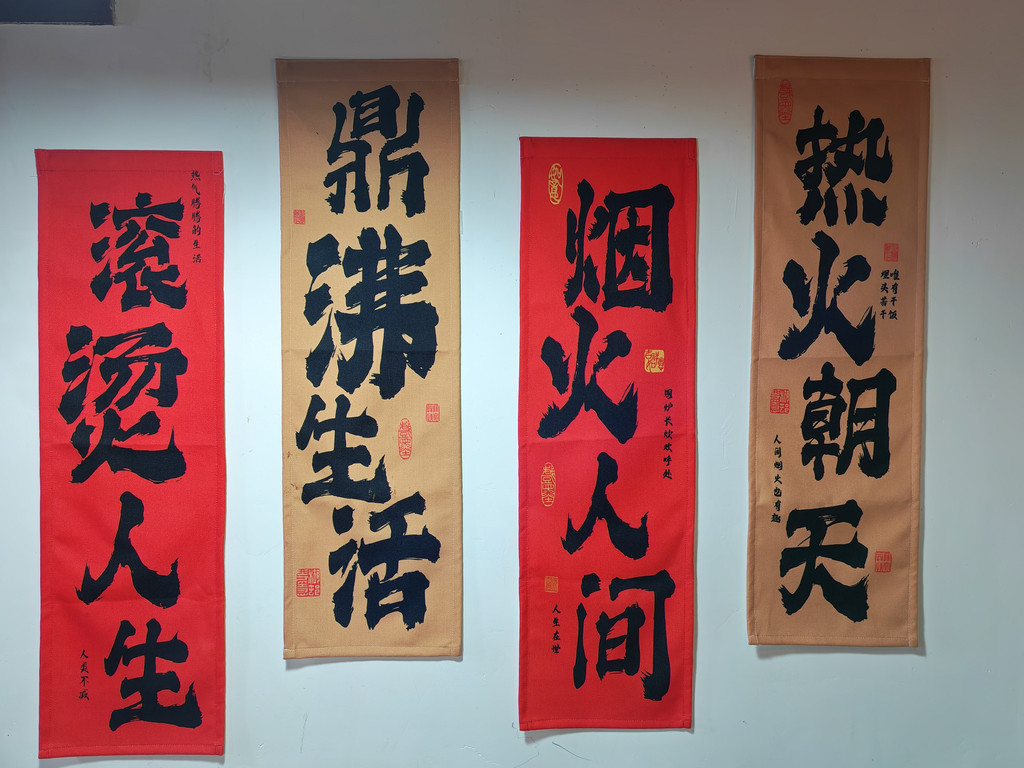 滚烫人生
热气腾腾的生活
人炎不减
鼎沸生活
烟火人间
围炉长炊欢呼处
人生在世
热火朝天
唯有干饭
埋头苦干
人间烟火也有趣